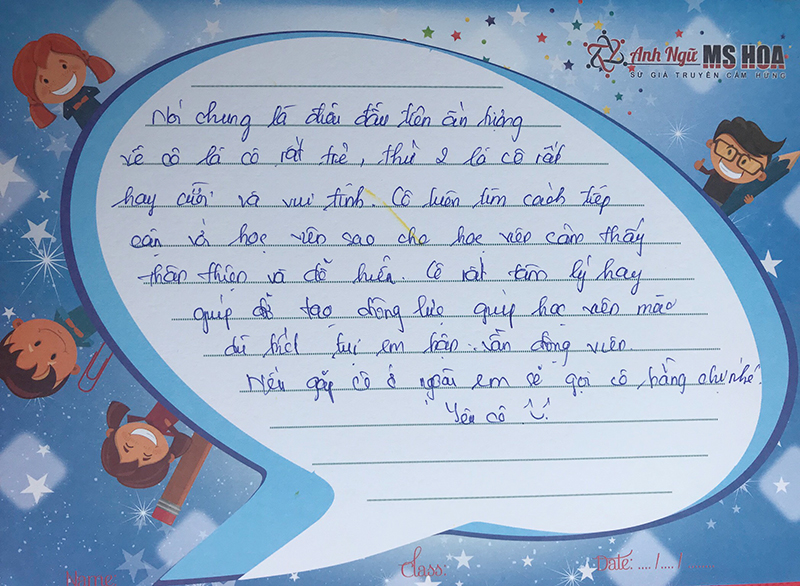 Anh Ngữ MS HOA
SỨ GIẢ TRUYỀN CẢM HỨNG
Nói chung là điều đầu tiên ấn tượng
về cô là cô rất trẻ, thứ 2 là cô rất
hay cười và vui tính. Cô luôn tìm cách tiếp
cận với học viên sao cho học viên cảm thấy
thân thiện và dễ hiểu. Cô rất tâm lý hay
giúp đỡ tạo động lực giúp học viên mặc
dù biết tụi em bận vẫn động viên.
Nếu gặp cô ở ngoài em sẽ gọi cô bằng chị nhé.
Yêu cô
Name:
Class:
Date: ..../..../.......